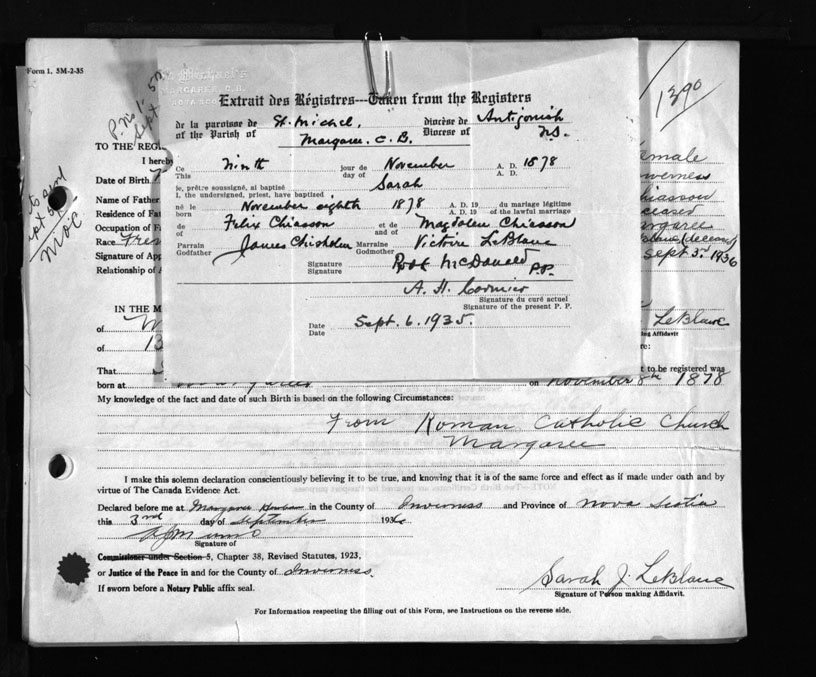 Form 1. 5M-2-35
1390
P. No 1. 5M
Sept
MARGAREE, C.B.
Extrait des Régistres---Taken from the Registers
de la paroisse de St. Michel, diocèse de Antigonish
of the Parish of Margaree. C. B. Diocese of N.S.
Ce This Ninth jour de day of November A. D. 1878
A. D.
je, prêtre soussigné, ai baptisé
I, the undersigned, priest, have baptised Sarah
né le born November eighth 1878 A. D. 19 du mariage légitime
A. D. 19 of the lawful marriage
de of Felix Chiasson et de and of Magdalen Chiasson
Parrain Godfather James Chisholm Marraine Godmother Victoire LeBlanc
Signature Signature Rod McDonald P.P.
A. H. Cormier
Signature du curé actuel
Signature of the present P. P.
Date Date Sept. 6. 1935.
TO THE REG
I hereby
Date of Birth
Name of Father
Residence of Fat
Occupation of F
Race Fren
Signature of App
Relationship of A
emale
verness
hiasson
ceased
argaree
Blanc (deceased)
Sept 3rd 1936
IN THE M
of W
of 13 LeBlanc
ing Affidavit
re:
That t to be registered was
born at Margaree on November 8th 1878
My knowledge of the fact and date of such Birth is based on the following Circumstances:
From Roman Catholic Church
Margaree
I make this solemn declaration conscientiously believing it to be true, and knowing that it is of the same force and effect as if made under oath and by
virtue of The Canada Evidence Act.
Declared before me at Margaree in the County of Inverness and Province of Nova Scotia
this 3rd day of September 193
Signature of
Commissioner under Section 5, Chapter 38, Revised Statutes, 1923,
or Justice of the Peace in and for the County of Inverness.
If sworn before a Notary Public affix seal.
Sarah J. LeBlanc
Signature of Person making Affidavit.
For Information respecting the filling out of this Form, see Instructions on the reverse side.